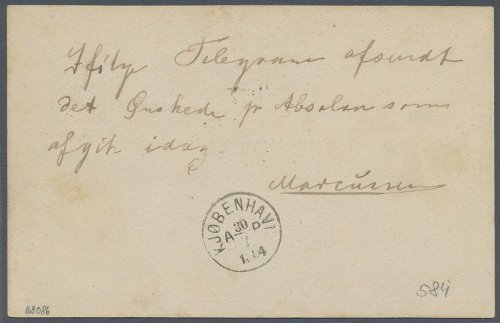 Ifølge Telegram afsendt
det Ønskede pr Absalon som
afgik idag.
Marcussen
KJØBENHAVN
30
A P
7
1884
584
118086